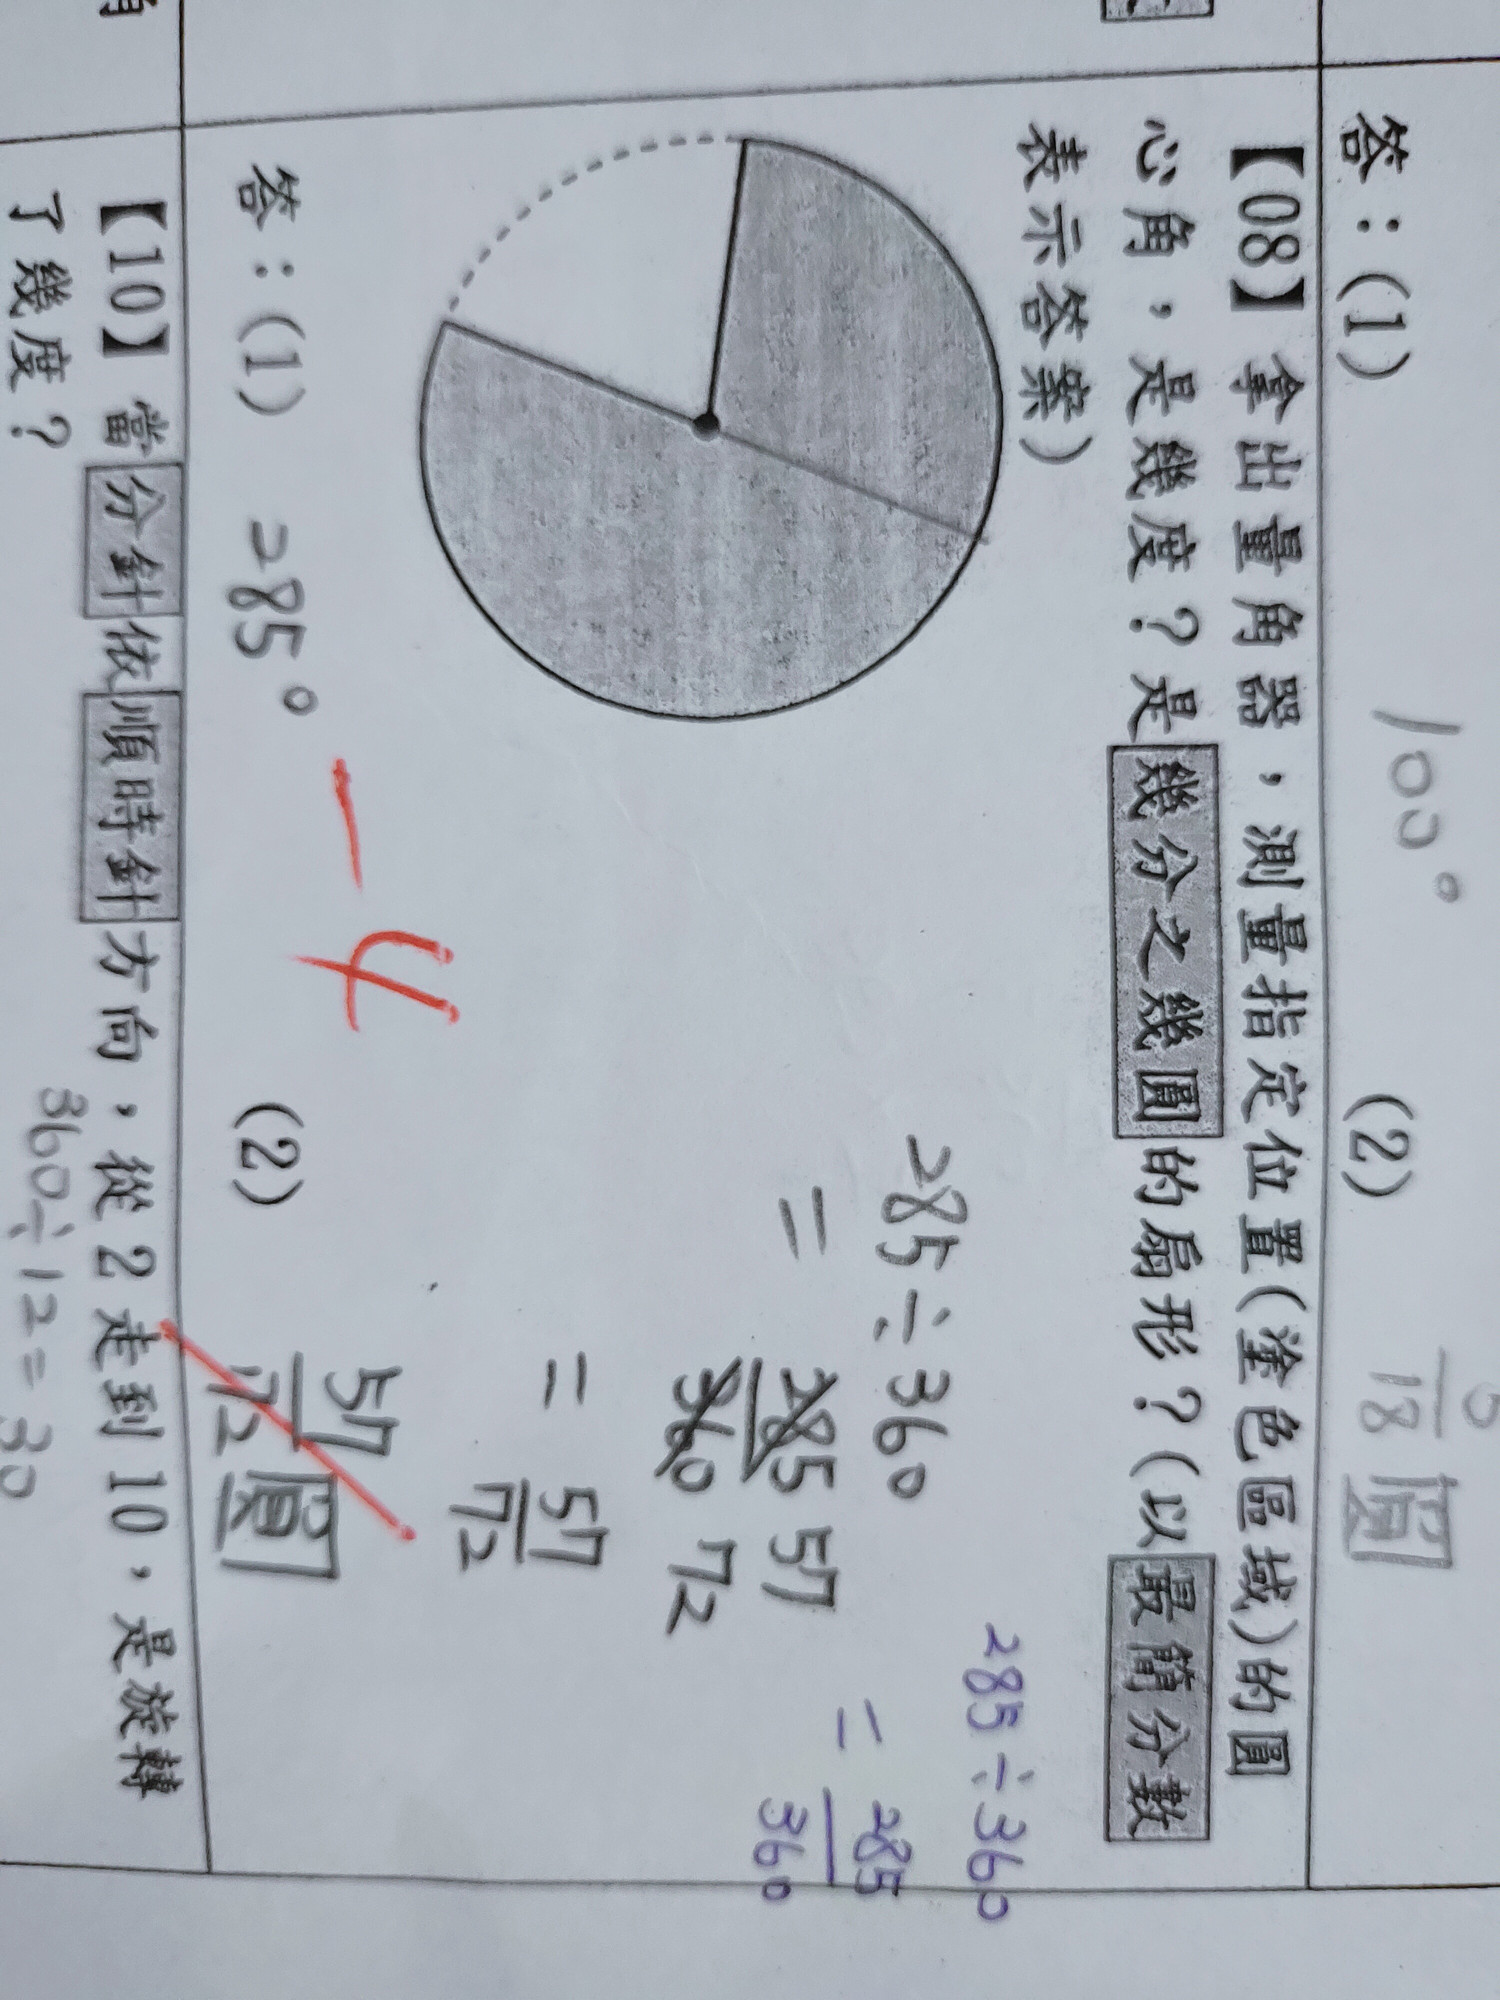 答：(1) 100° (2) 5/18 圓
【08】拿出量角器，測量指定位置(塗色區域)的圓
心角，是幾度？是幾分之幾圓的扇形？(以最簡分數
表示答案)
285÷360
= 285/360 57/72
= 57/72
285÷360
= 285/360
-4
答：(1) 285° (2) 57/72 圓
【10】當分針依順時針方向，從2走到10，是旋轉
了幾度？
360÷12=30